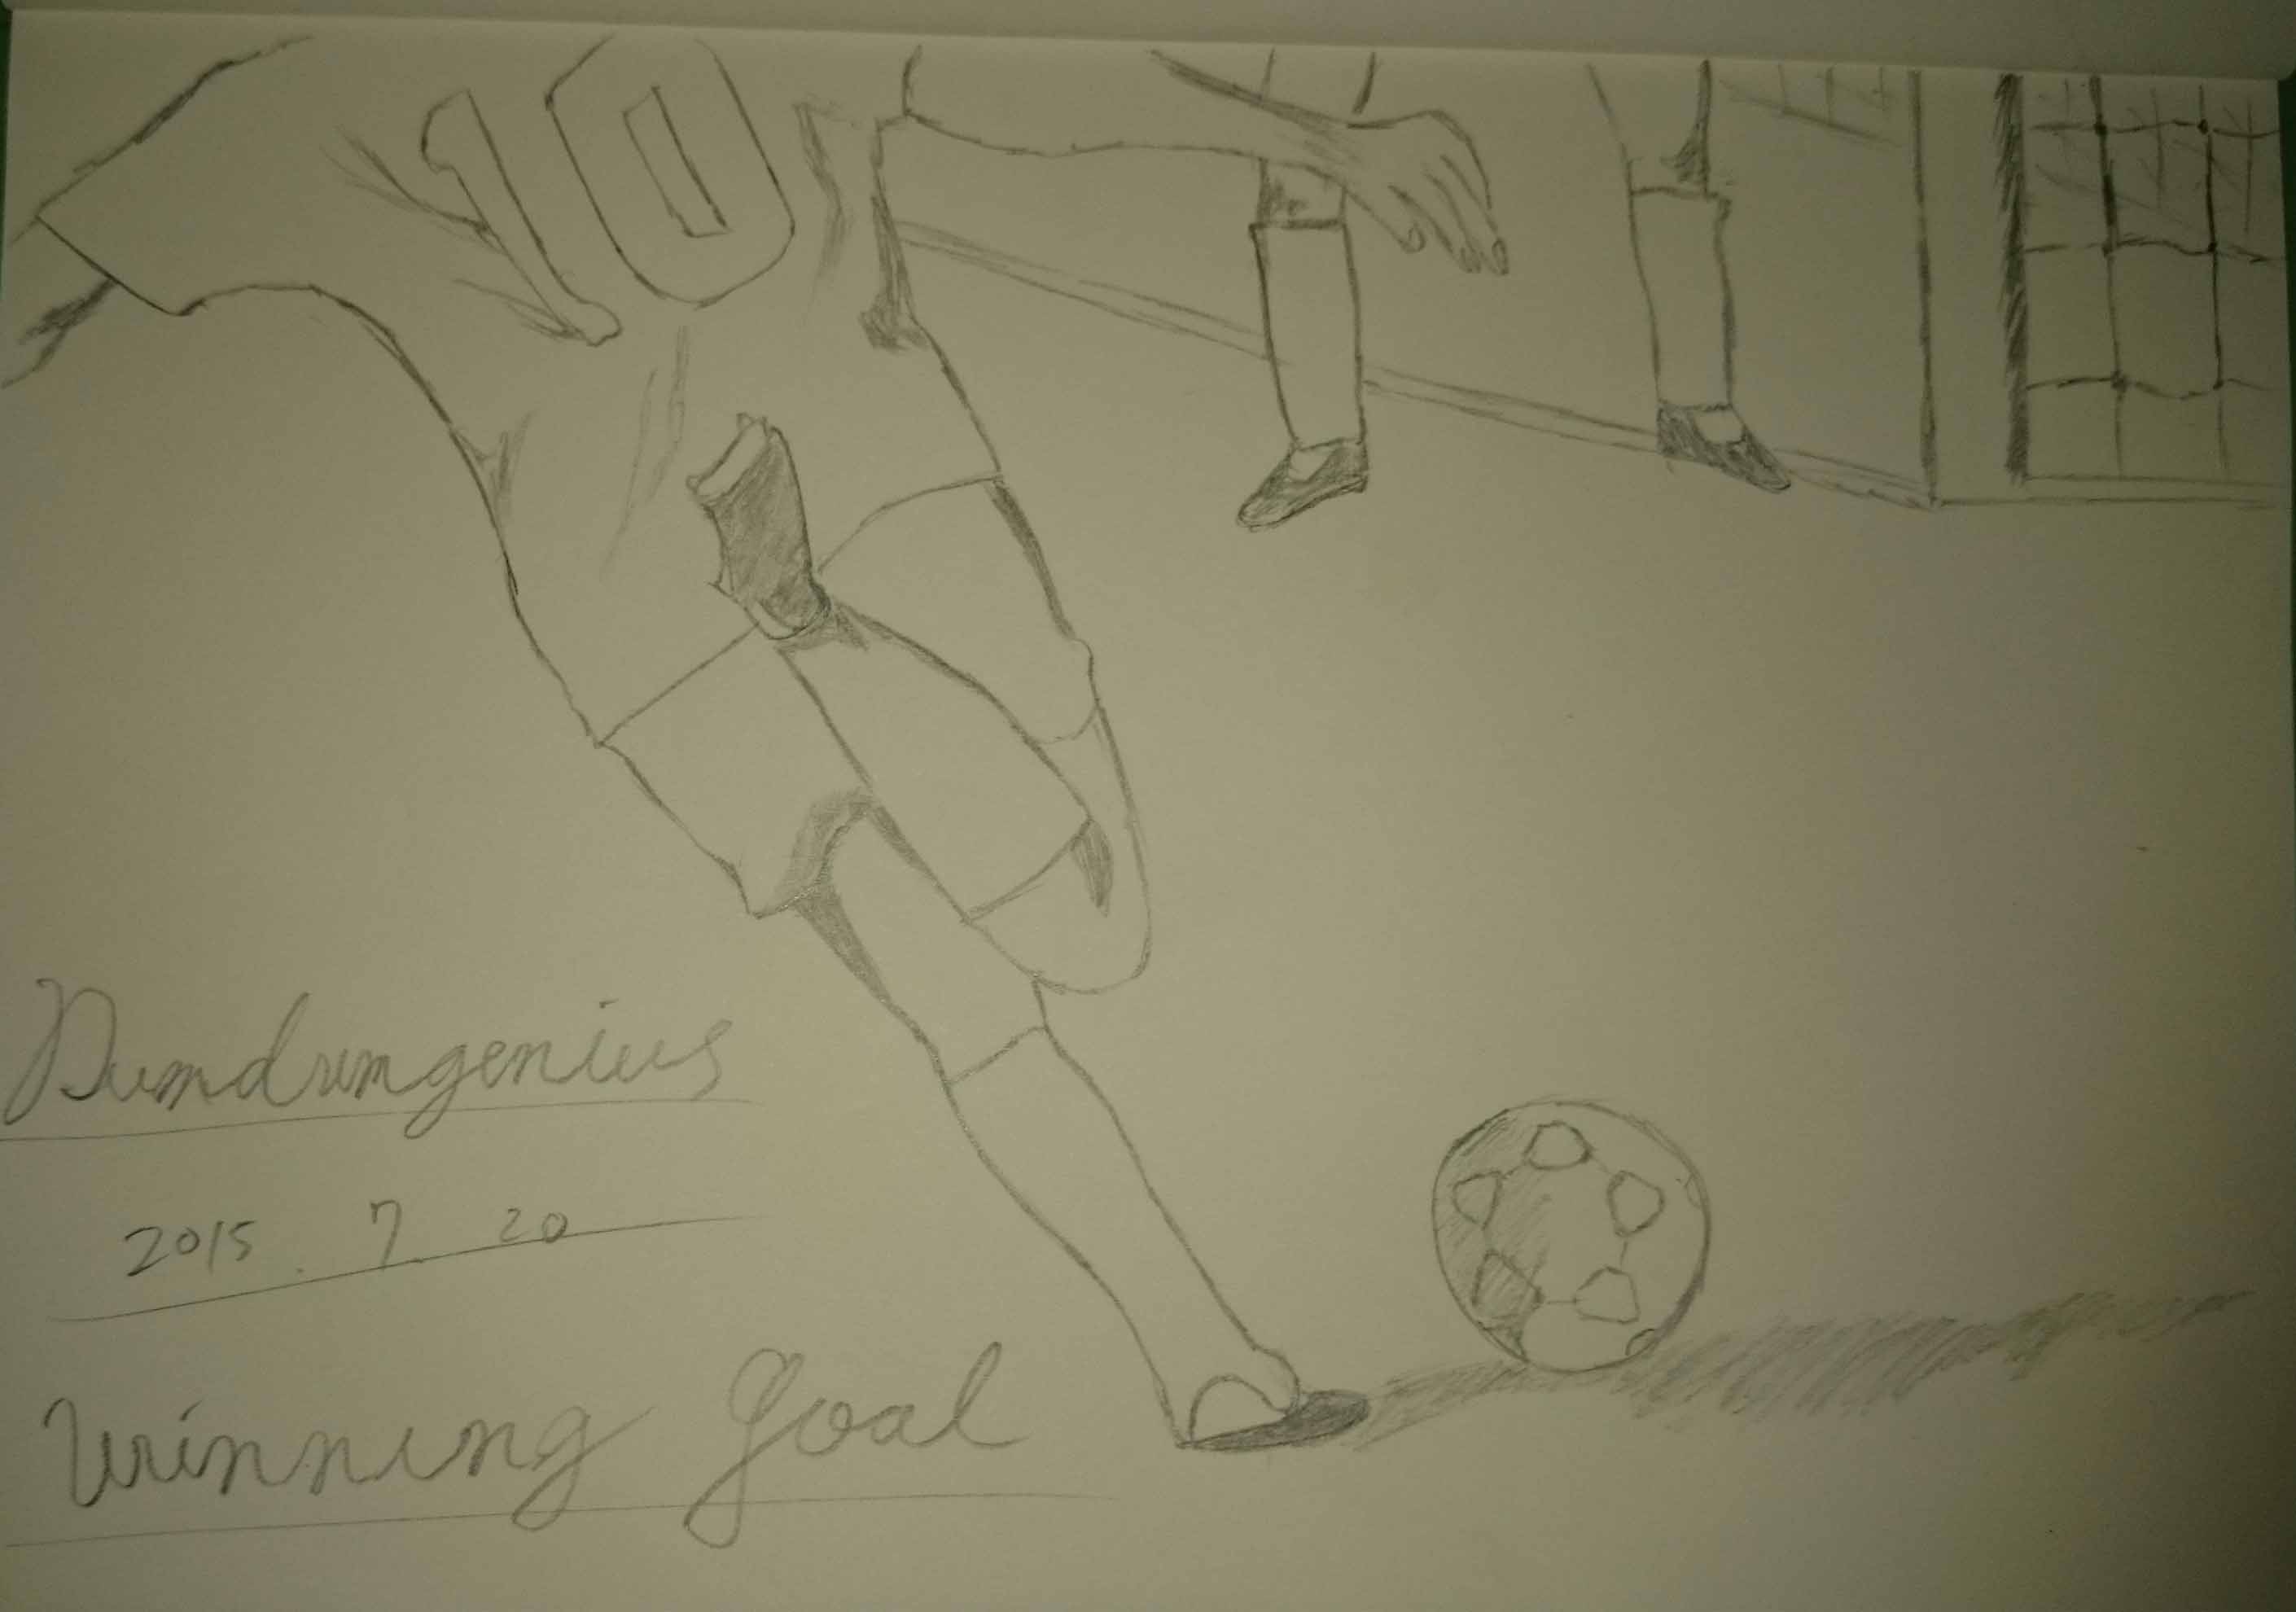 10
Dumdumgenius
2015. 7. 20
Winning goal